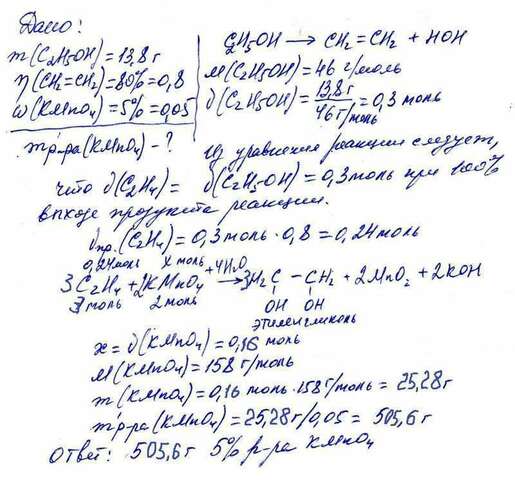 Дано:
m(C2H5OH) = 13,8 г
η(CH2=CH2) = 80% = 0,8
ω(KMnO4) = 5% = 0,05
m р-ра(KMnO4) - ?
C2H5OH → CH2=CH2 + HOH
M(C2H5OH) = 46 г/моль
ν(C2H5OH) = 13,8 г / 46 г/моль = 0,3 моль
Из уравнения реакции следует,
что ν(C2H4) = ν(C2H5OH) = 0,3 моль при 100%
выходе продукта реакции.
νпр.(C2H4) = 0,3 моль · 0,8 = 0,24 моль
0,24 моль x моль
3C2H4 + 2KMnO4 +4H2O → 3H2C - CH2 + 2MnO2 + 2KOH
3 моль 2 моль OH OH
этиленгликоль
x = ν(KMnO4) = 0,16 моль
M(KMnO4) = 158 г/моль
m(KMnO4) = 0,16 моль · 158 г/моль = 25,28 г
m р-ра(KMnO4) = 25,28 г/0,05 = 505,6 г
Ответ: 505,6 г 5% р-ра KMnO4